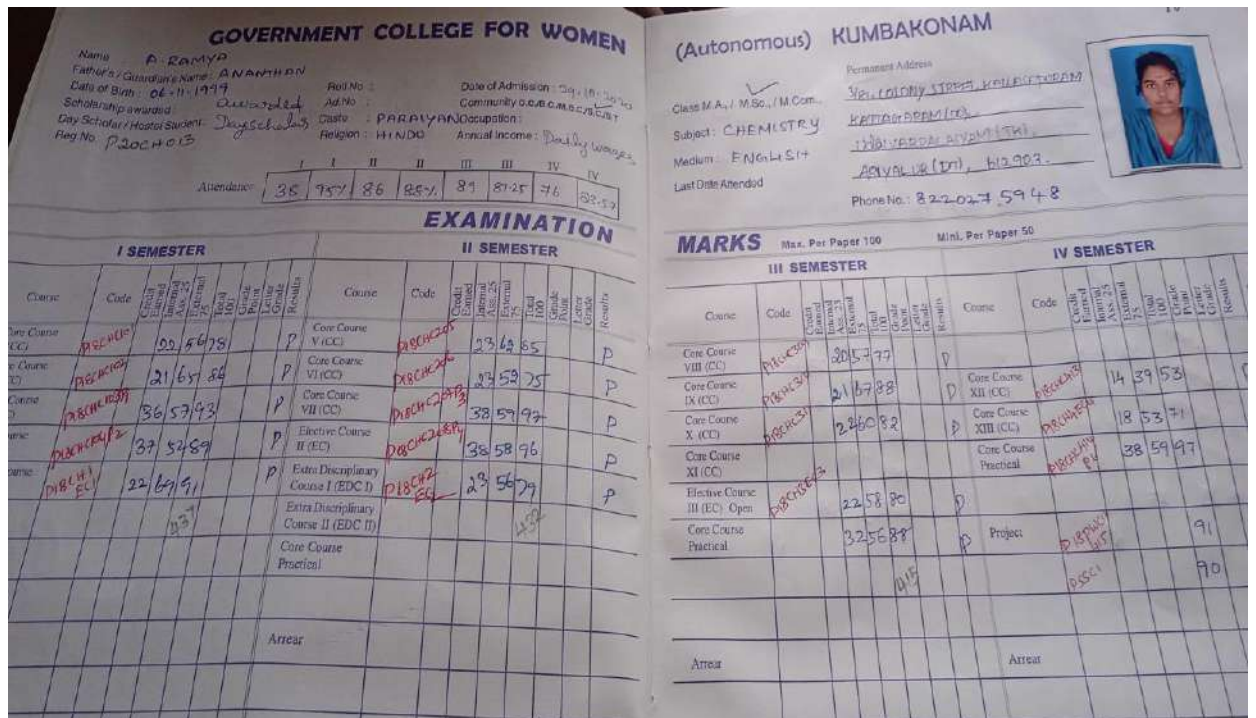 GOVERNMENT COLLEGE FOR WOMEN (Autonomous) KUMBAKONAM
Name : A. RAMYA
Father's / Guardian's Name : ANANTHAN
Date of Birth : 06-11-1999
Scholarship awarded : awarded
Day Scholar / Hostel Student : Dayscholar
Reg No P20CH013
Roll No :
Ad.No :
Caste : PARAIYAN
Religion : HINDU
Date of Admission :
Community O.C./B.C./M.B.C./S.C./S.T
Occupation :
Annual Income : Daily wages
I I II II III III IV IV
Attendance 38 95% 86 88% 89 87.25 76
Class M.A., / M.Sc., / M.Com.,
Subject : CHEMISTRY
Medium : ENGLISH
Last Date Attended
Permanent Address
COLONY STREET,
612903.
Phone No. : 822027 5948
EXAMINATION MARKS Max. Per Paper 100 Mini. Per Paper 50
I SEMESTER
Course Code Credit Earned Internal Ass. 25 External 75 Total 100 Grade Point Letter Grade Results
22 56 78 P
21 65 86 P
36 57 93 P
37 52 89 P
P18CH1EC1 22 69 91 P
437
II SEMESTER
Course Code Credit Earned Internal Ass. 25 External 75 Total 100 Grade Point Letter Grade Results
Core Course V (CC) P18CHC205 23 62 85 P
Core Course VI (CC) P18CHC206 23 52 75 P
Core Course VII (CC) 38 59 97 P
Elective Course II (EC) 38 58 96 P
Extra Disciplinary Course I (EDC I) P18CH2EC2 23 56 79 P
Extra Disciplinary Course II (EDC II) 432
Core Course Practical
Arrear
III SEMESTER
Course Code Credit Earned Internal Ass. 25 External 75 Total 100 Grade Point Letter Grade Results
Core Course VIII (CC) 20 57 77 P
Core Course IX (CC) 21 67 88 P
Core Course X (CC) 22 60 82 P
Core Course XI (CC)
Elective Course III (EC) Open P18CH3EC3 22 58 80 P
Core Course Practical 32 56 88 P
415
Arrear
IV SEMESTER
Course Code Credit Earned Internal Ass. 25 External 75 Total 100 Grade Point Letter Grade Results
Core Course XII (CC) 14 39 53
Core Course XIII (CC) 18 53 71
Core Course Practical 38 59 97
Project 91
PSSC1 90
Arrear